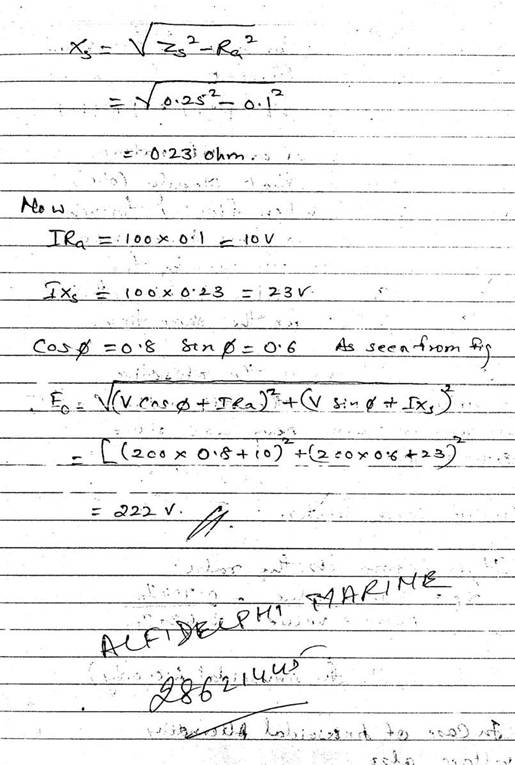 Xs = √Zs² - Ra²
= √0.25² - 0.1²
= 0.23 ohm.
Now
IRa = 100 x 0.1 = 10V
IXs = 100 x 0.23 = 23V
Cos ø = 0.8 Sin ø = 0.6 As seen from fig
E₀ = √(V cos ø + IRa)² + (V sin ø + IXs)²
= [(200 x 0.8 + 10)² + (200 x 0.6 + 23)²
= 222 V.
ALFIDELPHI MARINE